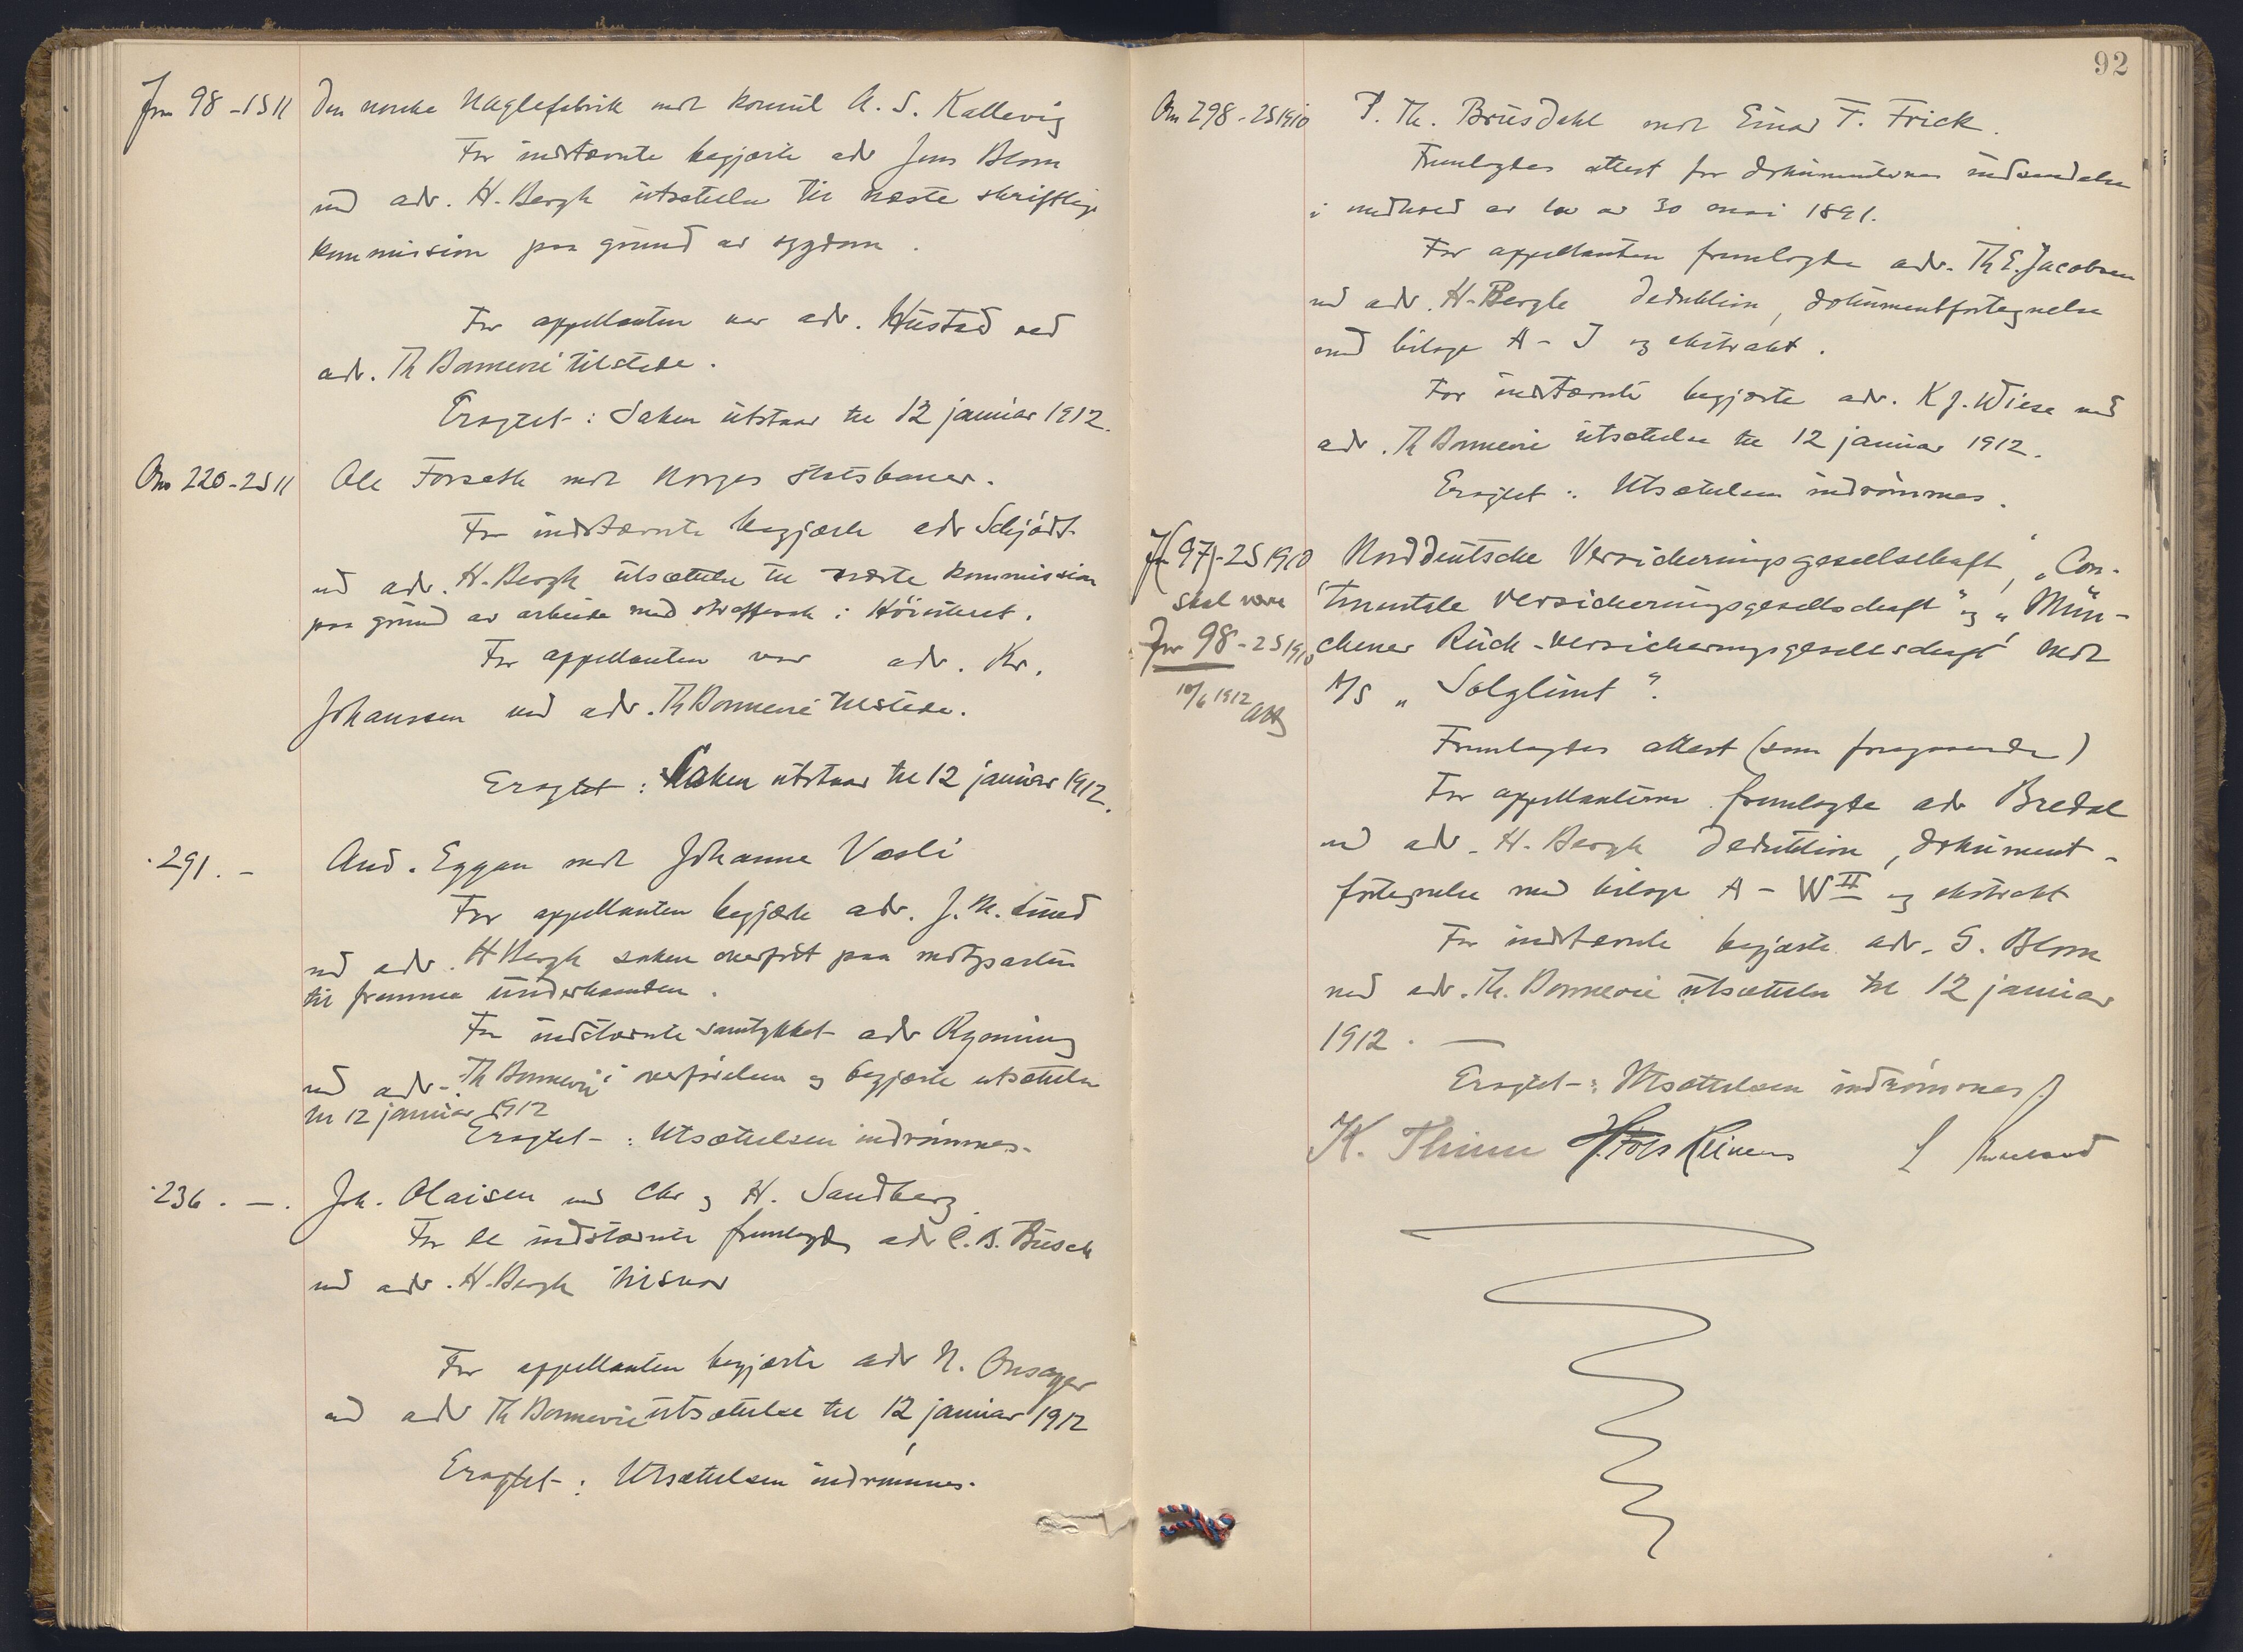 Den norske Naglefabrik mot konsul A. S. Kallevig
For indstævnte begjærte adv Jens Blom
ved adv. H. Bergh utsættelse til næste skriftlige
kommission paa grund av sygdom.
For appellanten var adv. Hustad ved
adv. Th Bonnevie tilstede.
Eragtet: Saken utstaar til 12 januar 1912.
220 - 2S 11
Ole Forseth mot Norges Statsbaner.
For indstævnte begjærte adv Schjødt
ved adv. H. Bergh utsættelse til næste kommission
paa grund av arbeide med straffesak i Höiesteret.
For appellanten var adv. Kr.
Johanssen ved adv. Th Bonnevie tilstede.
Eragtet: Saken utstaar til 12 januar 1912.
291. -
And. Eggan mot Johanne Væsli
For appellanten begjærte adv. J. M. Lund
ved adv. H Bergh saken overført paa motparten
til fremme underhaanden.
For indstævnte samtykket adv Rynning
ved adv. Th Bonnevie i overförelsen og begjærte utsættelse
til 12 januar 1912
Eragtet: Utsættelsen indrømmes.
236. -.
Joh. Olaisen mot Chr og H. Sandberg.
For de indstævnte fremlagdes adv C. B. Busch
ved adv. H. Bergh tilsvar
For appellanten begjærte adv N. Onsager
ved adv Th Bonnevie utsættelse til 12 januar 1912
Eragtet: Utsættelsen indrømmes.
92
298 - 2S 1910
P. Th. Brusdahl mot Einar F. Frick.
Fremlagdes attest for dokumenternes indsendelse
i medhold av lov av 30 mai 1891.
For appellanten fremlagde adv. Th E. Jacobsen
ved adv. H. Bergh deduktion, dokumentfortegnelse
med bilage A - J og ekstrakt.
For indstævnte begjærte adv. K J. Wiese ved
adv. Th Bonnevie utsættelse til 12 januar 1912.
Eragtet: Utsættelsen indrømmes.
97) - 2S 1910
Norddeutsche Versicherungsgesellschaft, „Con-
skal være
tinentale Versicherungsgesellschaft" og „Mün-
98 - 2S 1910
chener Rück-versicherungsgesellschaft" mot
10/6 1912
A/S „Solglimt".
Fremlagdes attest (som foregaaende)
For appellanterne fremlagde adv Bredal
ved adv. H. Bergh deduktion, dokument-
fortegnelse med bilage A - W II og ekstrakt
For indstævnte begjærte adv. G. Blom
ved adv. Th. Bonnevie utsættelse til 12 januar
1912. —
Eragtet: Utsættelsen indrömmes.
K. Thinn